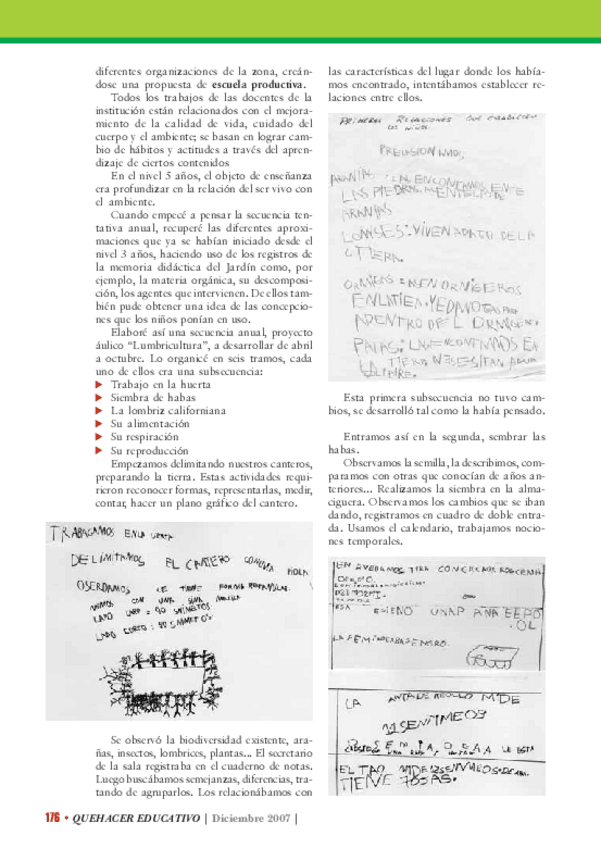 diferentes organizaciones de la zona, creán-
dose una propuesta de escuela productiva.
Todos los trabajos de las docentes de la
institución están relacionados con el mejora-
miento de la calidad de vida, cuidado del
cuerpo y el ambiente; se basan en lograr cam-
bio de hábitos y actitudes a través del apren-
dizaje de ciertos contenidos
En el nivel 5 años, el objeto de enseñanza
era profundizar en la relación del ser vivo con
el ambiente.
Cuando empecé a pensar la secuencia ten-
tativa anual, recuperé las diferentes aproxi-
maciones que ya se habían iniciado desde el
nivel 3 años, haciendo uso de los registros de
la memoria didáctica del Jardín como, por
ejemplo, la materia orgánica, su descomposi-
ción, los agentes que intervienen. De ellos tam-
bién pude obtener una idea de las concepcio-
nes que los niños ponían en uso.
Elaboré así una secuencia anual, proyecto
áulico “Lumbricultura”, a desarrollar de abril
a octubre. Lo organicé en seis tramos, cada
uno de ellos era una subsecuencia:
Trabajo en la huerta
Siembra de habas
La lombriz californiana
Su alimentación
Su respiración
Su reproducción
Empezamos delimitando nuestros canteros,
preparando la tierra. Estas actividades requi-
rieron reconocer formas, representarlas, medir,
contar, hacer un plano gráfico del cantero.
TRABAGAMOS EN LA
DELIMITAMOS EL CANTERO CON
LADO LARGO = 90
LADO CORTO: 
Se observó la biodiversidad existente, ara-
ñas, insectos, lombrices, plantas... El secretario
de la sala registraba en el cuaderno de notas.
Luego buscábamos semejanzas, diferencias, tra-
tando de agruparlos. Los relacionábamos con
las características del lugar donde los había-
mos encontrado, intentábamos establecer re-
laciones entre ellos.
PRIMERAS RELACIONES QUE ESTABLECEN
LOS NIÑOS.
ARAÑAS
LAS PIEDRAS
ARAÑAS
VIVEN
TIERA.
ADENTRO DEL
Esta primera subsecuencia no tuvo cam-
bios, se desarrolló tal como la había pensado.
Entramos así en la segunda, sembrar las
habas.
Observamos la semilla, la describimos, com-
paramos con otras que conocían de años an-
teriores... Realizamos la siembra en la alma-
ciguera. Observamos los cambios que se iban
dando, registramos en cuadro de doble entra-
da. Usamos el calendario, trabajamos nocio-
nes temporales.
LA
TIENE
176 • QUEHACER EDUCATIVO | Diciembre 2007 |